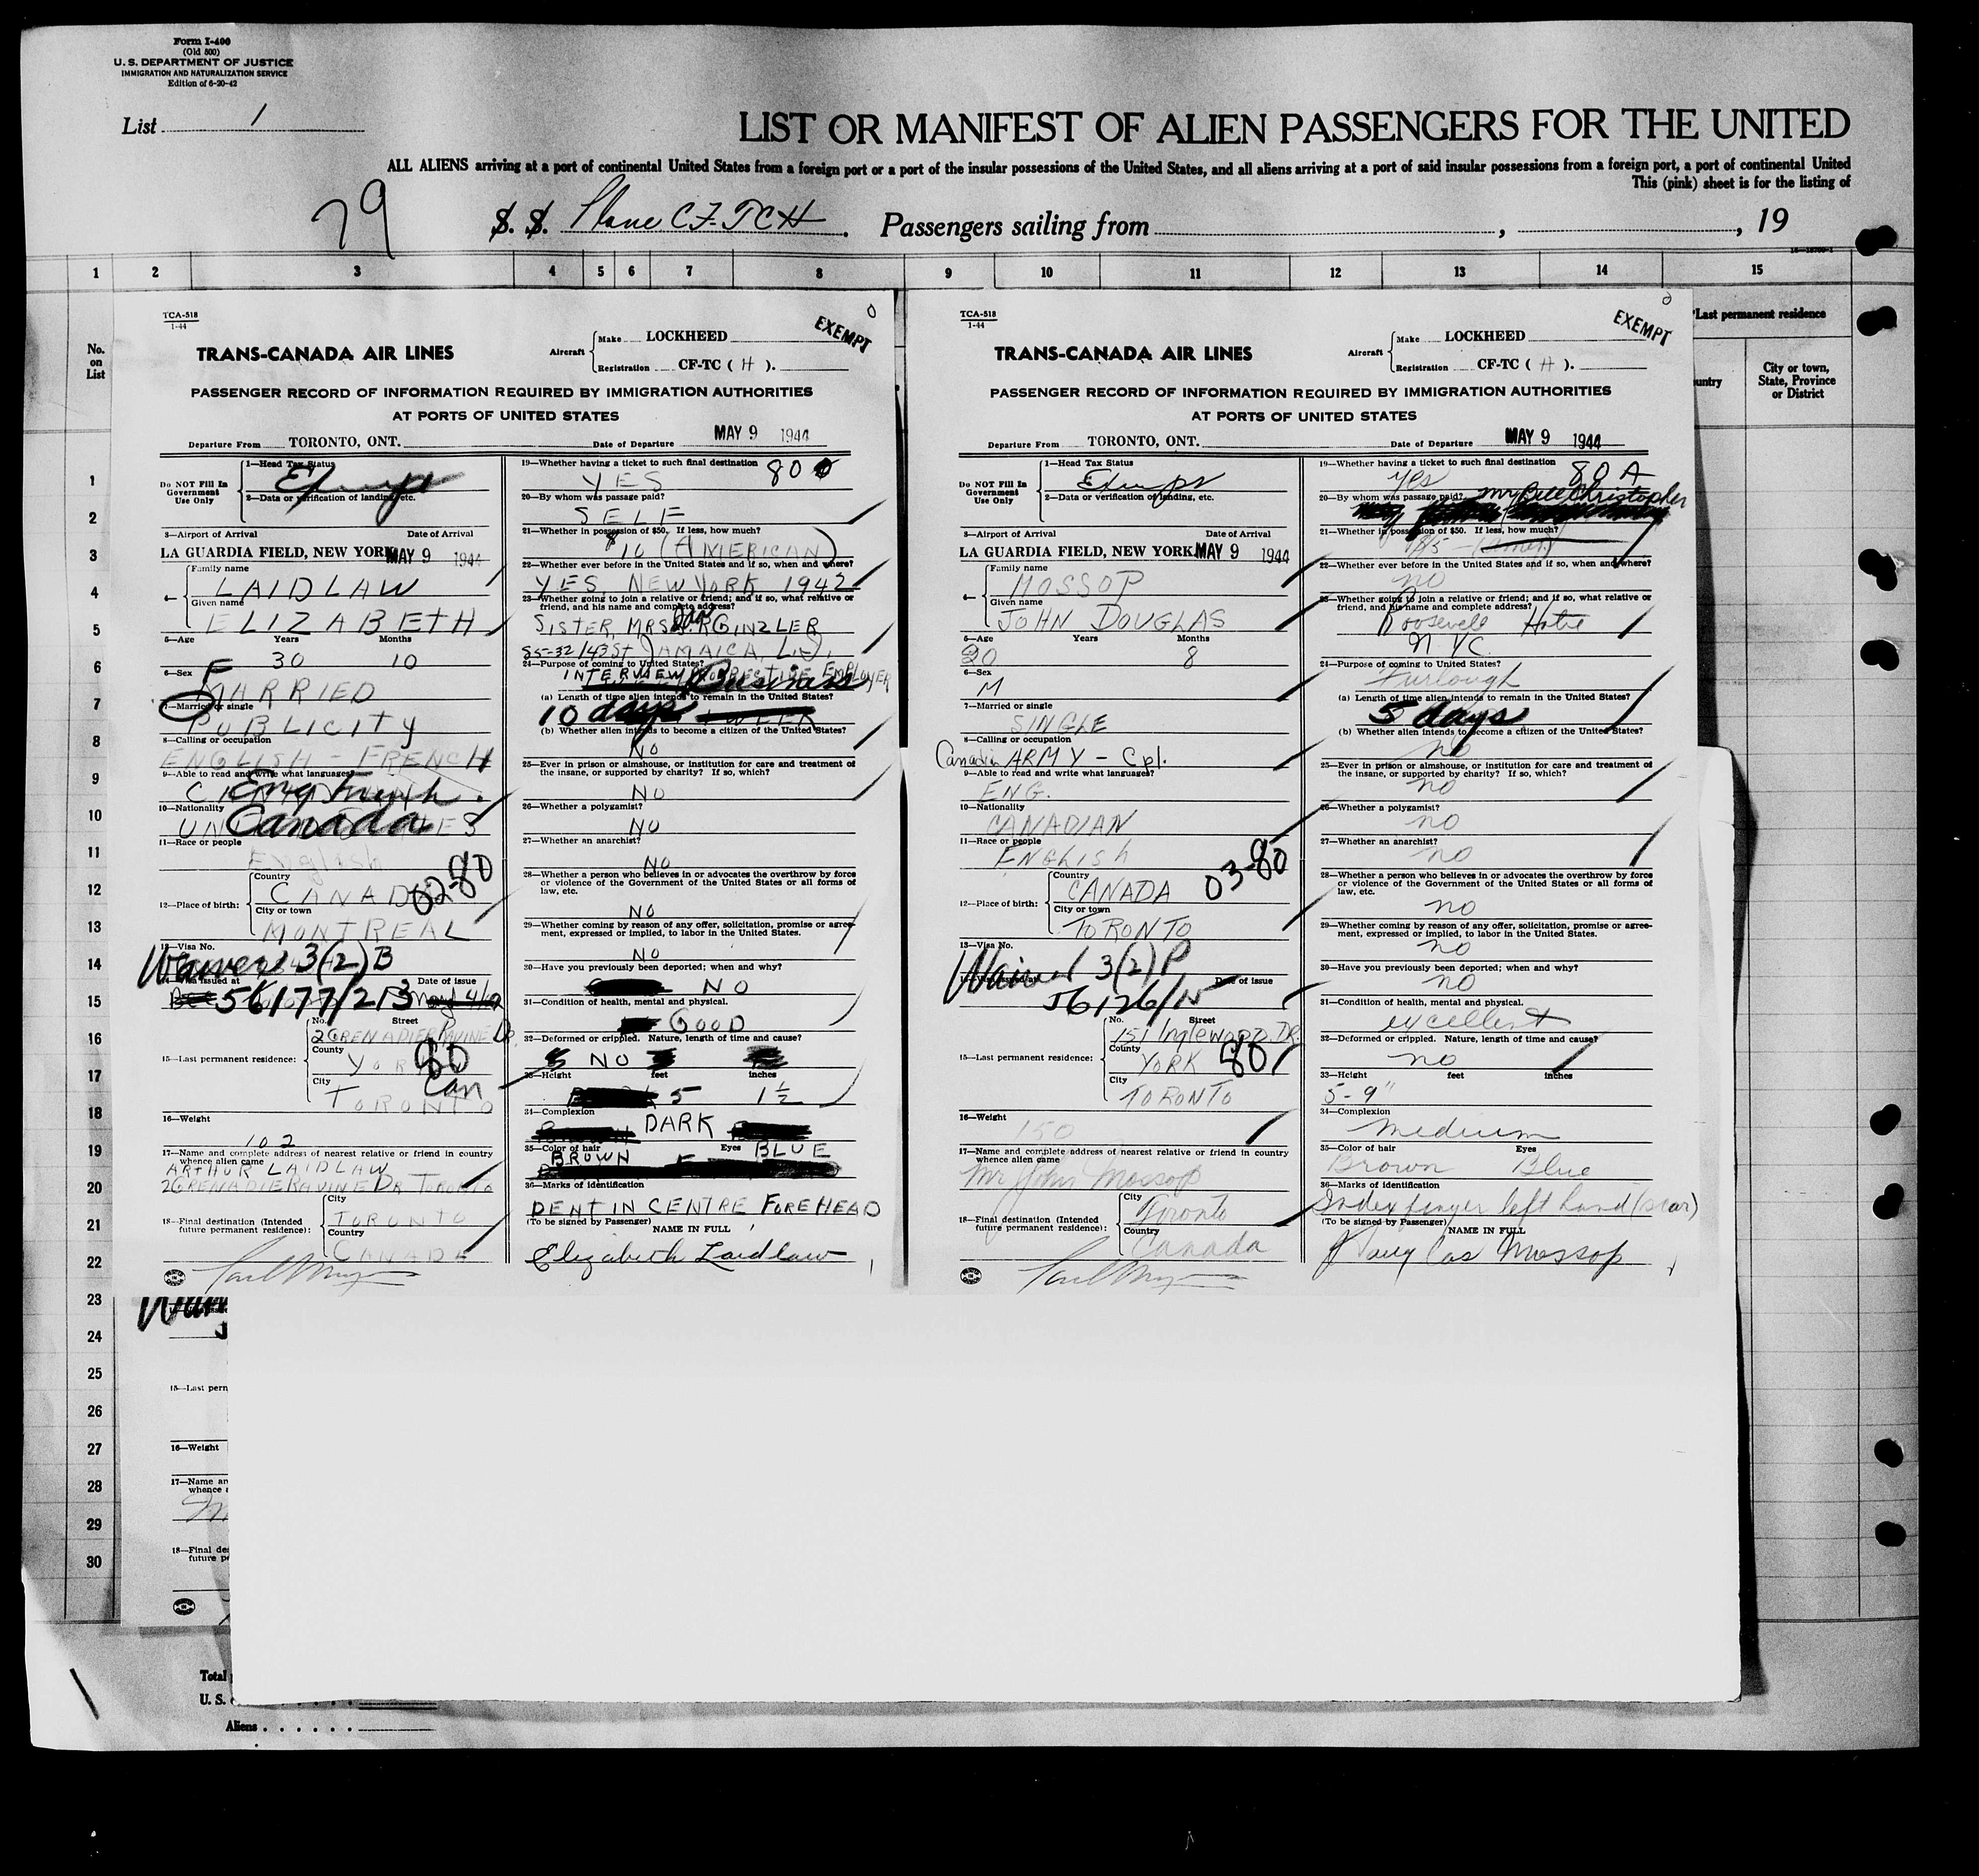 Form I-400
(Old 500)
U. S. DEPARTMENT OF JUSTICE
IMMIGRATION AND NATURALIZATION SERVICE
Edition of 6-20-42
List 1
LIST OR MANIFEST OF ALIEN PASSENGERS FOR THE UNITED
ALL ALIENS arriving at a port of continental United States from a foreign port or a port of the insular possessions of the United States, and all aliens arriving at a port of said insular possessions from a foreign port, a port of continental United
This (pink) sheet is for the listing of
79 S. S. Plane CF-TCH. Passengers sailing from , , 19
1 2 3 4 5 6 7 8 9 10 11 12 13 14 15
No.
on
List
Last permanent residence
City or town,
State, Province
or District
1
2
3
4
5
6
7
8
9
10
11
12
13
14
15
16
17
18
19
20
21
22
23
24
25
26
27
28
29
30
TCA-518
1-44
EXEMPT
TRANS-CANADA AIR LINES
Aircraft
Make LOCKHEED
Registration CF-TC ( H ).
PASSENGER RECORD OF INFORMATION REQUIRED BY IMMIGRATION AUTHORITIES
AT PORTS OF UNITED STATES
Departure From TORONTO, ONT. Date of Departure MAY 9 1944
Do NOT Fill In
Government
Use Only
1—Head Tax Status
2—Data or verification of landing, etc.
3—Airport of Arrival Date of Arrival
LA GUARDIA FIELD, NEW YORK MAY 9 1944
4—
Family name
LAIDLAW
Given name
ELIZABETH
5—Age Years Months
30 10
6—Sex F
MARRIED
7—Married or single
PUBLICITY
8—Calling or occupation
ENGLISH - FRENCH
9—Able to read and write what languages?
Eng French.
10—Nationality
Canada
11—Race or people
English
12—Place of birth:
Country
CANADA 02-80
City or town
MONTREAL
13—Visa No.
Waiver 3(2) B
14—Visa issued at Date of issue
56177/213
15—Last permanent residence:
No. Street
2 GRENADIER RAVINE DR.
County
YORK 80
City Can
TORONTO
16—Weight
102
17—Name and complete address of nearest relative or friend in country
whence alien came
ARTHUR LAIDLAW
2 GRENADIER RAVINE DR TORONTO
18—Final destination (Intended
future permanent residence):
City
TORONTO
Country
CANADA
19—Whether having a ticket to such final destination 80
YES
20—By whom was passage paid?
SELF
21—Whether in possession of $50. If less, how much?
$10 (AMERICAN)
22—Whether ever before in the United States and if so, when and where?
YES NEW YORK 1942
23—Whether going to join a relative or friend; and if so, what relative or
friend, and his name and complete address?
SISTER, MRS. GINZLER
85-32 143 ST JAMAICA, L.I.
24—Purpose of coming to United States?
INTERVIEW EMPLOYER Business
(a) Length of time alien intends to remain in the United States?
10 days
(b) Whether alien intends to become a citizen of the United States?
NO
25—Ever in prison or almshouse, or institution for care and treatment of
the insane, or supported by charity? If so, which?
NO
26—Whether a polygamist?
NO
27—Whether an anarchist?
NO
28—Whether a person who believes in or advocates the overthrow by force
or violence of the Government of the United States or all forms of
law, etc.
NO
29—Whether coming by reason of any offer, solicitation, promise or agree-
ment, expressed or implied, to labor in the United States.
NO
30—Have you previously been deported; when and why?
NO
31—Condition of health, mental and physical.
GOOD
32—Deformed or crippled. Nature, length of time and cause?
NO
33—Height feet inches
5 1½
34—Complexion
DARK
35—Color of hair Eyes
BROWN BLUE
36—Marks of identification
DENT IN CENTRE FOREHEAD
(To be signed by Passenger) NAME IN FULL
Elizabeth Laidlaw
TCA-518
1-44
EXEMPT
TRANS-CANADA AIR LINES
Aircraft
Make LOCKHEED
Registration CF-TC ( H ).
PASSENGER RECORD OF INFORMATION REQUIRED BY IMMIGRATION AUTHORITIES
AT PORTS OF UNITED STATES
Departure From TORONTO, ONT. Date of Departure MAY 9 1944
Do NOT Fill In
Government
Use Only
1—Head Tax Status
2—Data or verification of landing, etc.
3—Airport of Arrival Date of Arrival
LA GUARDIA FIELD, NEW YORK MAY 9 1944
4—
Family name
MOSSOP
Given name
JOHN DOUGLAS
5—Age Years Months
20 8
6—Sex
M
7—Married or single
SINGLE
8—Calling or occupation
Canadian ARMY - Cpl.
9—Able to read and write what languages?
ENG.
10—Nationality
CANADIAN
11—Race or people
ENGLISH
12—Place of birth:
Country
CANADA 03-80
City or town
TORONTO
13—Visa No.
Waiver 3(2) P
Date of issue
56126/
15—Last permanent residence:
No. Street
151 INGLEWOOD DR.
County
YORK 80
City
TORONTO
16—Weight
150
17—Name and complete address of nearest relative or friend in country
whence alien came
Mr John Mossop
18—Final destination (Intended
future permanent residence):
City
Toronto
Country
Canada
19—Whether having a ticket to such final destination 80 A
Yes
20—By whom was passage paid? Mr Bill Christopher
21—Whether in possession of $50. If less, how much?
22—Whether ever before in the United States and if so, when and where?
no
23—Whether going to join a relative or friend; and if so, what relative or
friend, and his name and complete address?
Roosevelt Hotel
N.Y.C.
24—Purpose of coming to United States?
Furlough
(a) Length of time alien intends to remain in the United States?
5 days
(b) Whether alien intends to become a citizen of the United States?
no
25—Ever in prison or almshouse, or institution for care and treatment of
the insane, or supported by charity? If so, which?
no
26—Whether a polygamist?
no
27—Whether an anarchist?
no
28—Whether a person who believes in or advocates the overthrow by force
or violence of the Government of the United States or all forms of
law, etc.
no
29—Whether coming by reason of any offer, solicitation, promise or agree-
ment, expressed or implied, to labor in the United States.
no
30—Have you previously been deported; when and why?
no
31—Condition of health, mental and physical.
excellent
32—Deformed or crippled. Nature, length of time and cause?
no
33—Height feet inches
5-9"
34—Complexion
Medium
35—Color of hair Eyes
Brown Blue
36—Marks of identification
Index finger left hand (scar)
(To be signed by Passenger) NAME IN FULL
J Douglas Mossop
15—Last perm
16—Weight
17—Name an
whence a
18—Final des
future pe
Total
U. S.
Aliens